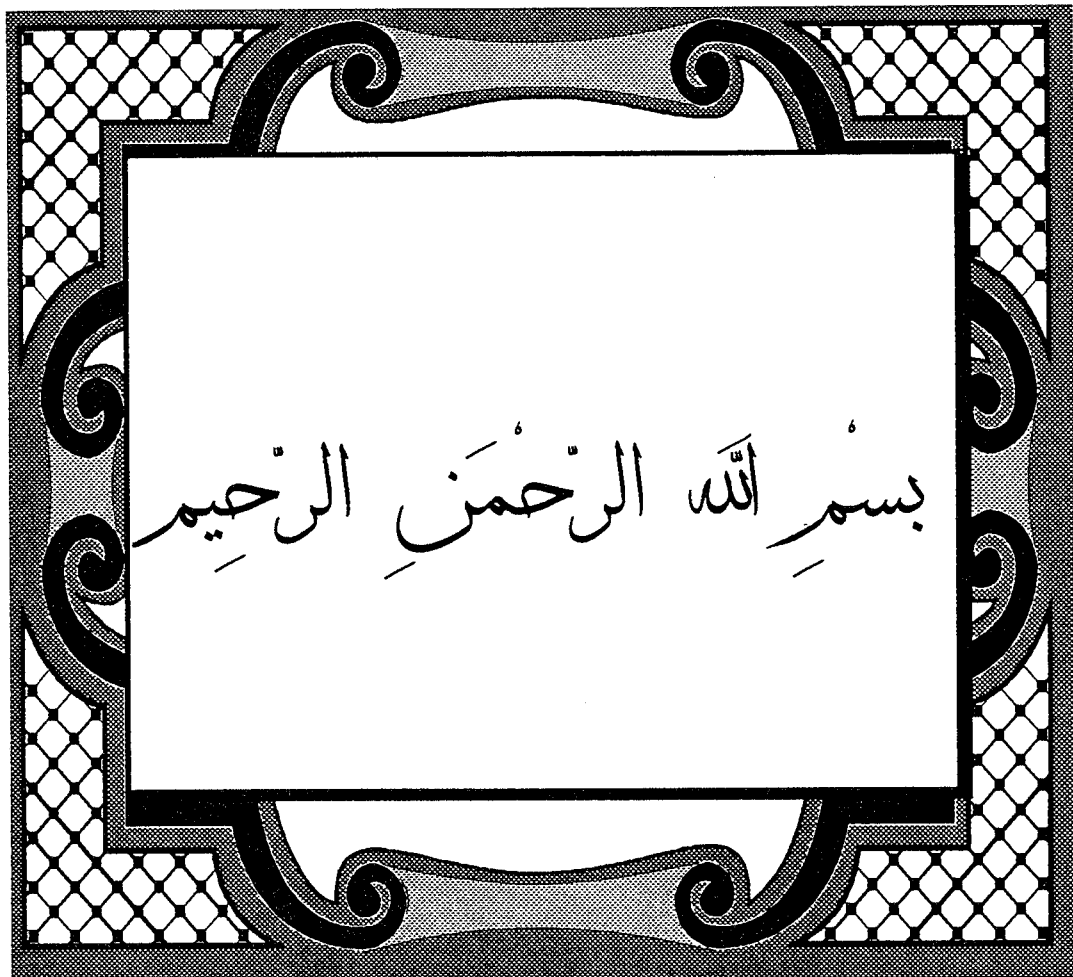 بسْمِ اللَّه الرّحْمَنِ الرّحِيم